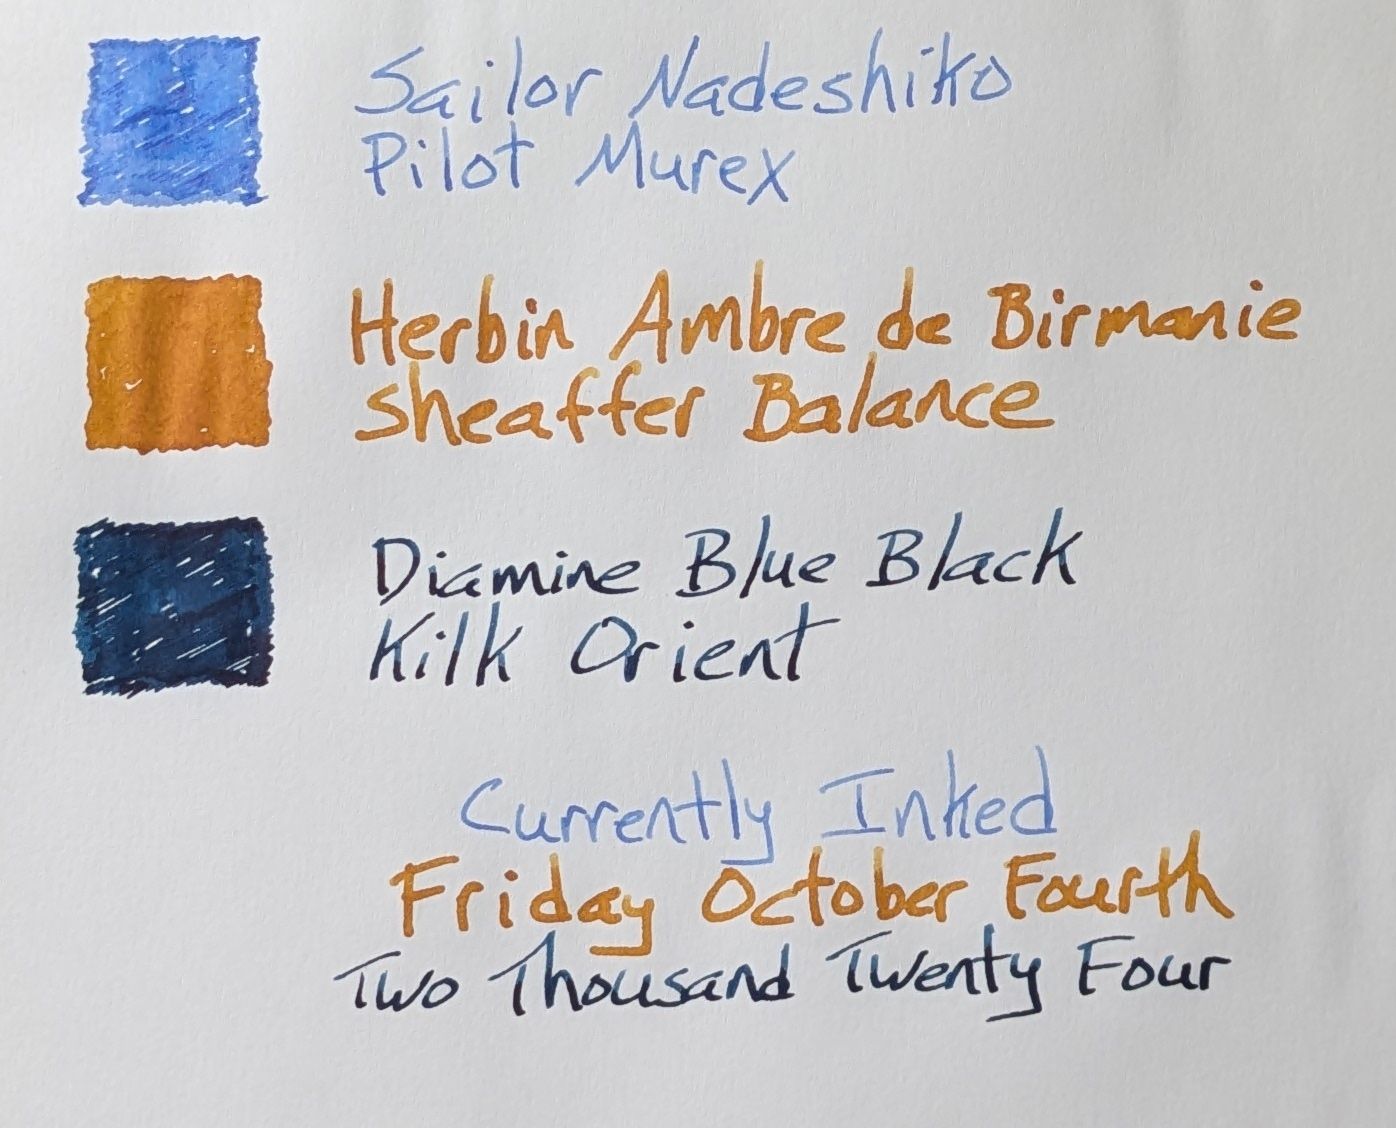 Sailor Nadeshiko
Pilot Murex
Herbin Ambre de Birmanie
Sheaffer Balance
Diamine Blue Black
Kilk Orient
Currently Inked
Friday October Fourth
Two Thousand Twenty Four